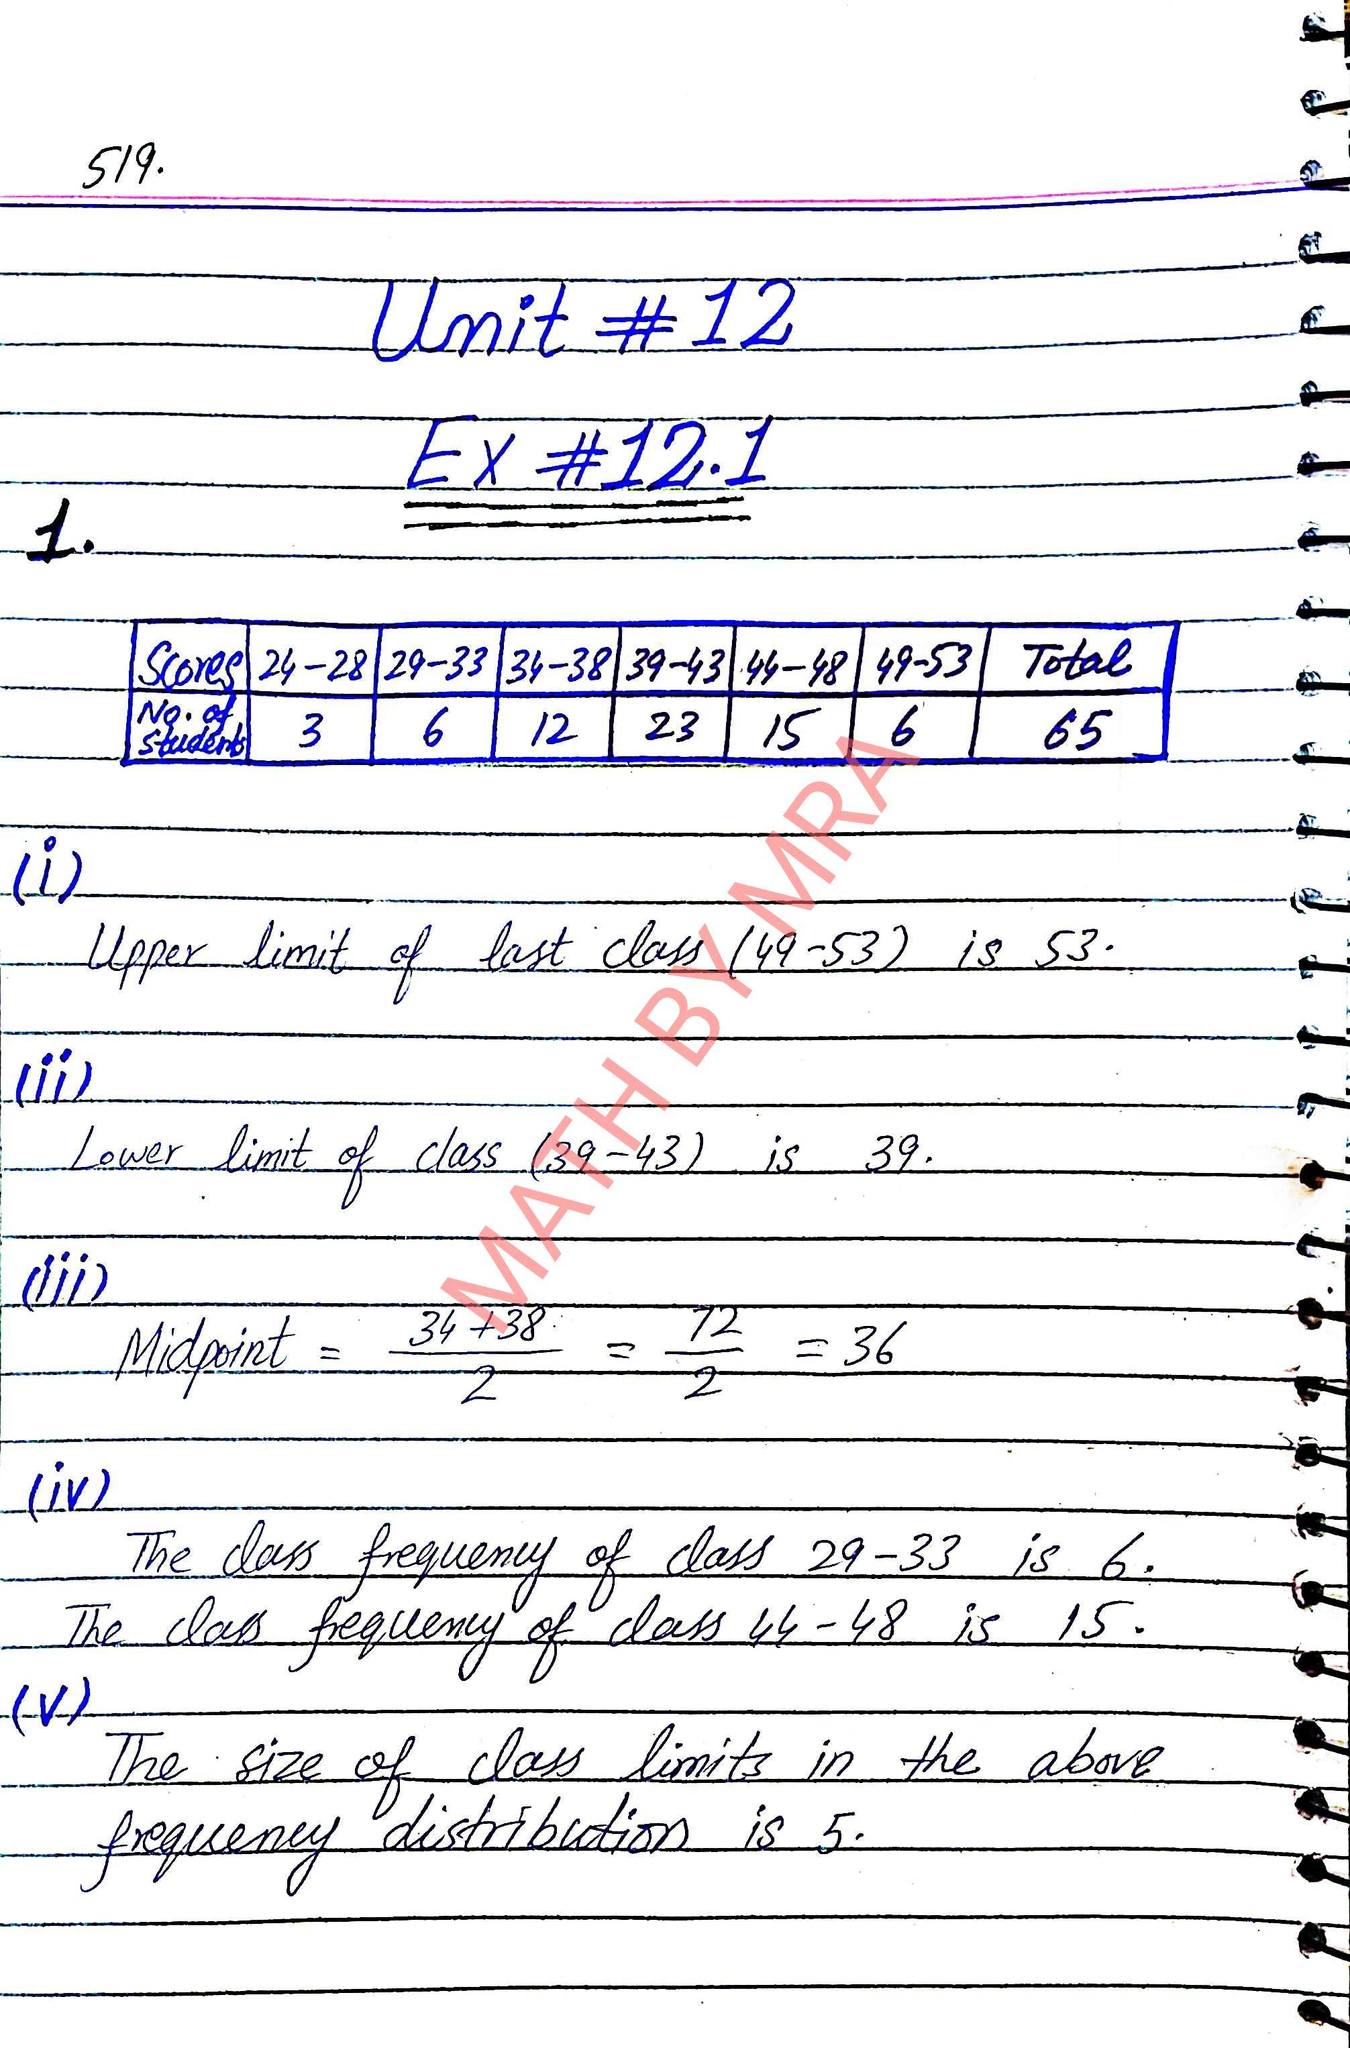 519.
Unit # 12
Ex # 12.1
1.
Scores 24-28 29-33 34-38 39-43 44-48 49-53 Total
No. of students 3 6 12 23 15 6 65
(i)
Upper limit of last class (49-53) is 53.
(ii)
Lower limit of class (39-43) is 39.
(iii)
Midpoint = 34+38/2 = 72/2 = 36
(iv)
The class frequency of class 29-33 is 6.
The class frequency of class 44-48 is 15.
(v)
The size of class limits in the above
frequency distribution is 5.
MATH BY MRA